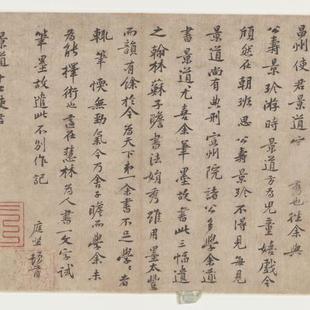 昌州使君景道宗秀也往余與
公壽景珍游時景道方為兒童嬉戲今
頎然在朝班思公壽景珍不得見每見
景道尚有典刑宣州院諸公多學余
書景道尤喜余筆墨故書此三幅遺
之翰林蘇子瞻書法娟秀雖用墨太豐
而韻有餘於今為天下第一余書不足學學者
輒筆愞無勁氣今乃舍子瞻而學余未
為能擇術也適在慧林為人書一文字試
筆墨故遺此不別作記
庭堅頓首
景道十七使君